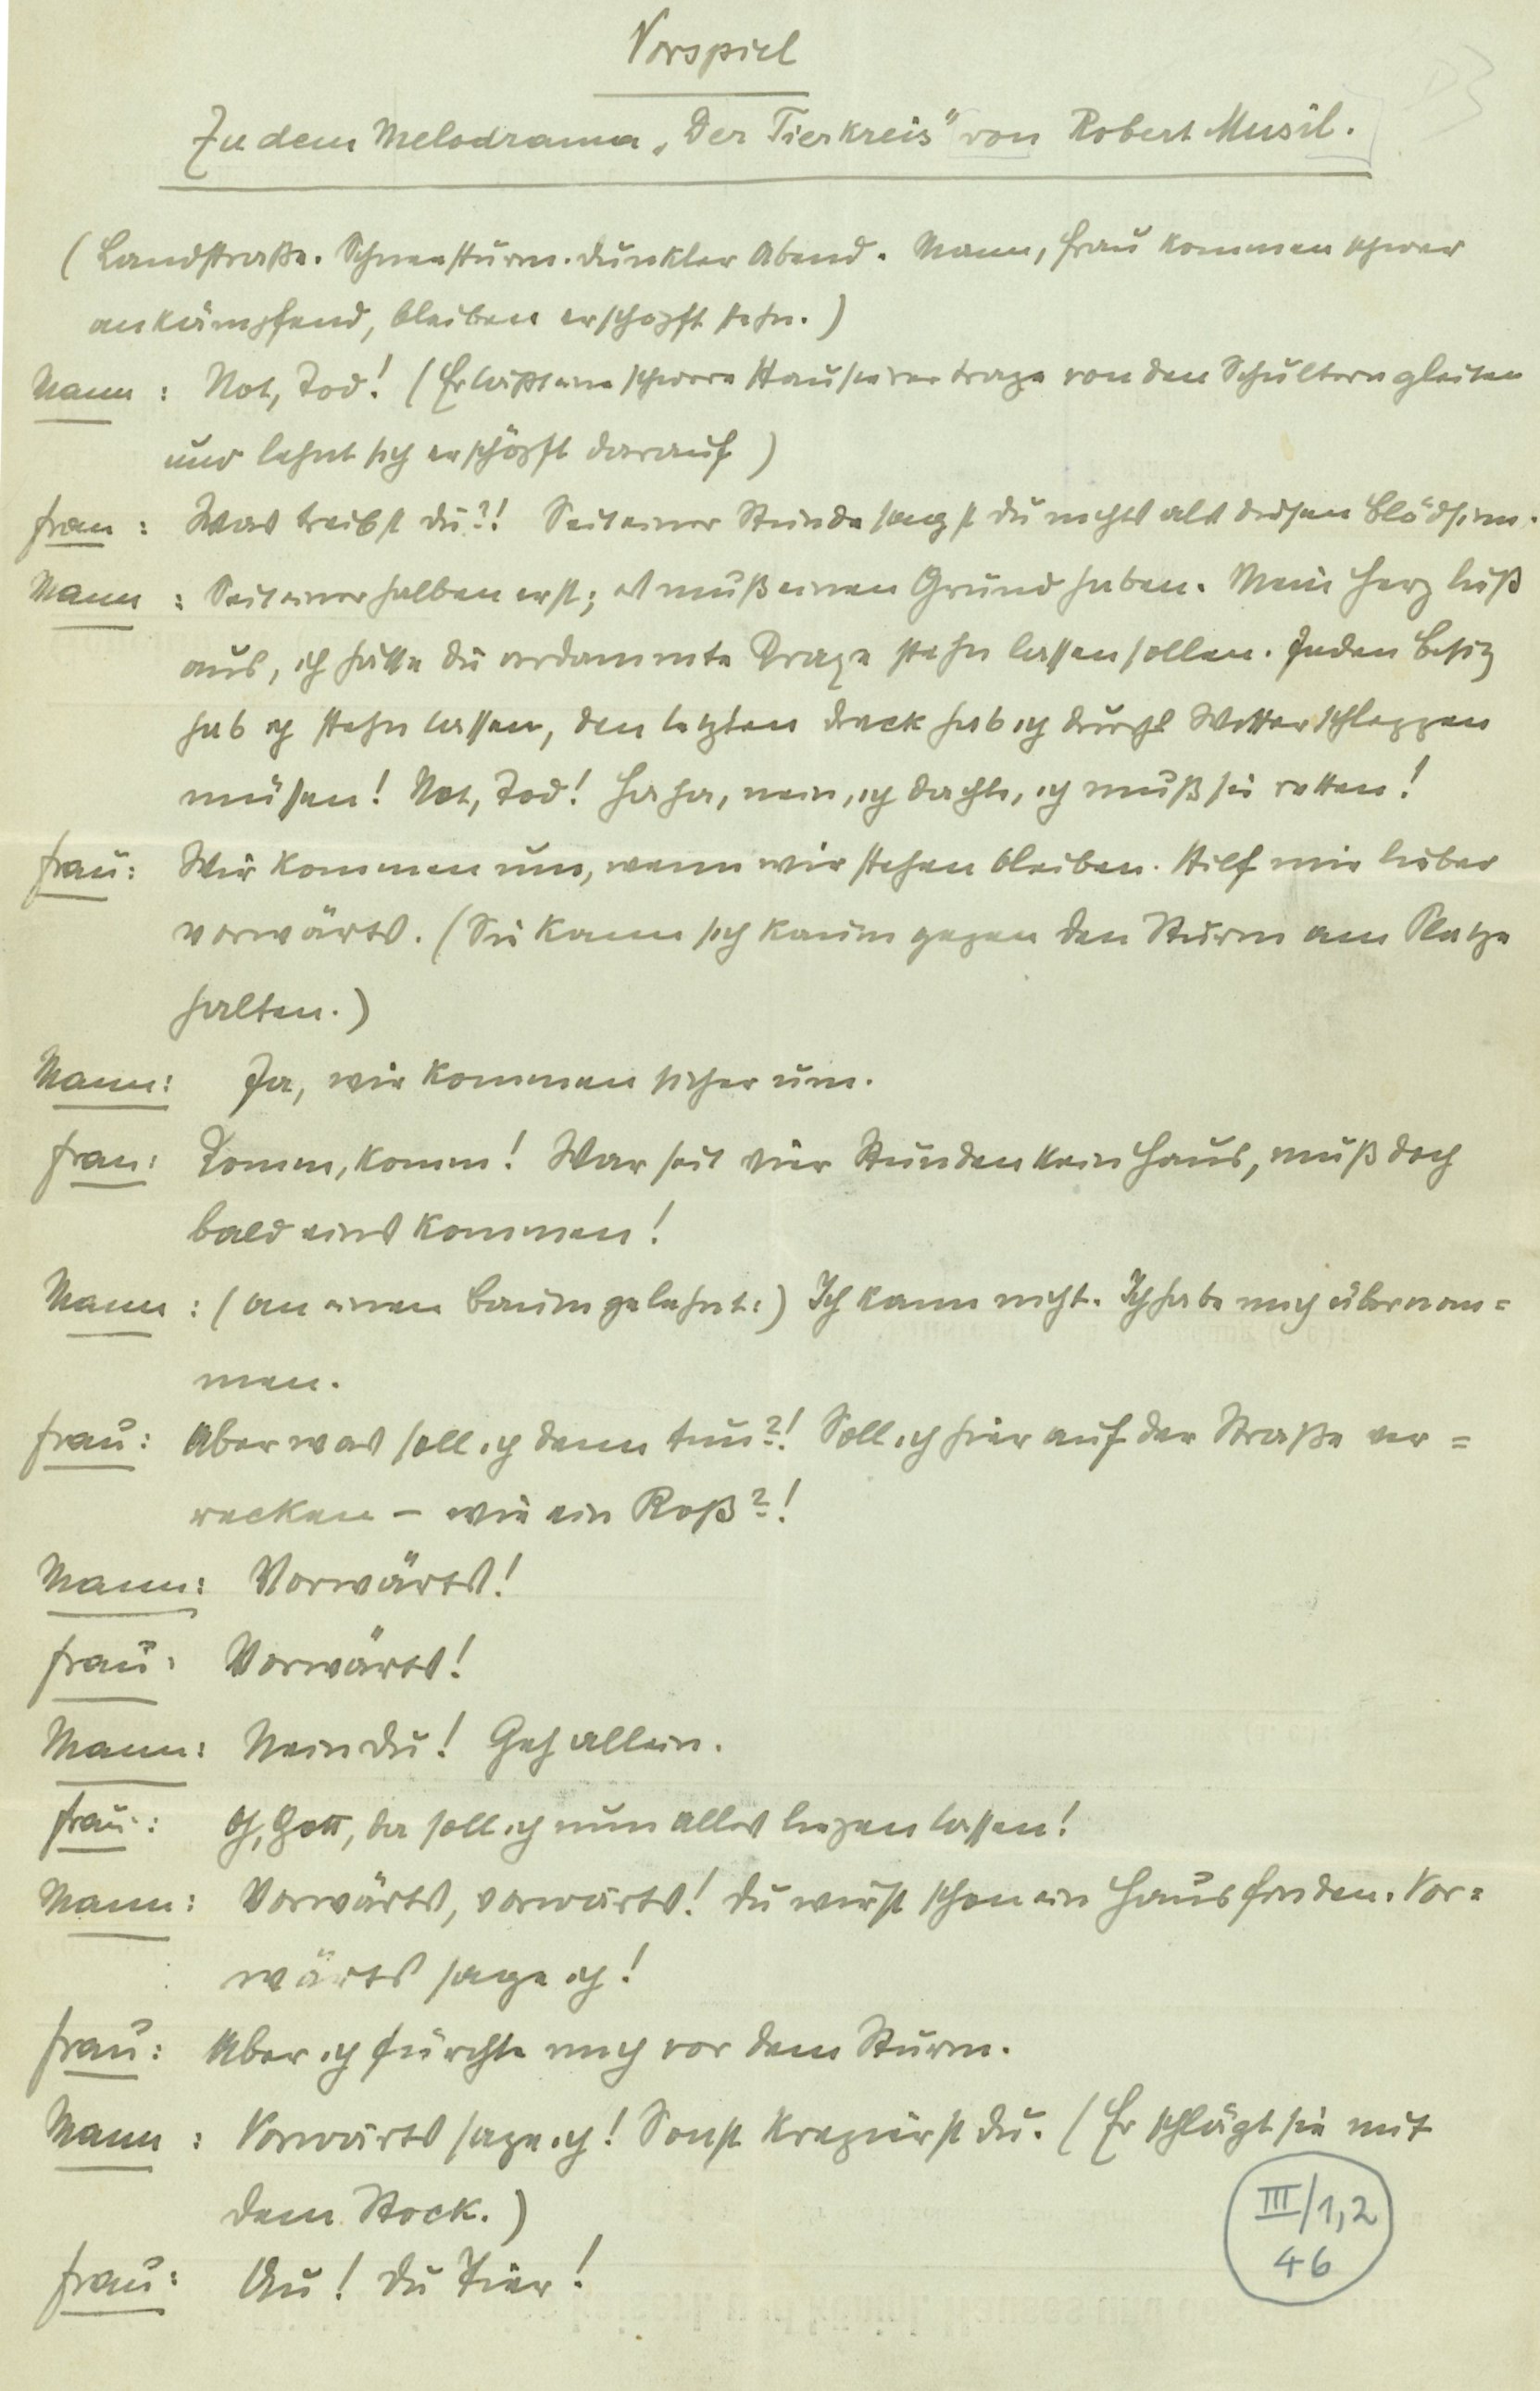 Vorspiel
Zu dem Melodrama „Der Tierkreis" von Robert Musil.
(Landstraße. Schneesturm. Dunkler Abend. Mann, Frau kommen schwer
ankämpfend, bleiben erschöpft stehn.)
Mann: Not, Tod! (Er läßt eine schwere Hausierertrage von den Schultern gleiten
und lehnt sich erschöpft darauf)
Frau: Was treibst du?! Seit einer Stunde sagst du nichts als diesen Blödsinn.
Mann: Seit einer halben erst; es muß einen Grund haben. Mein Herz läßt
aus, ich hätte die verdammte Trage stehn lassen sollen. Jeden Besitz
hab ich stehn lassen, den letzten Dreck hab ich durchs Wetter schleppen
müssen! Not, Tod! Ha ha, nein, ich dachte, ich muß sie retten!
Frau: Wir kommen um, wenn wir stehen bleiben. Hilf mir lieber
vorwärts. (Sie kann sich kaum gegen den Sturm am Platze
halten.)
Mann: Ja, wir kommen sicher um.
Frau: Komm, komm! War seit vier Stunden kein Haus, muß doch
bald eins kommen!
Mann: (an einen Baum gelehnt:) Ich kann nicht. Ich habe mich übernom=
men.
Frau: Aber was soll ich denn tun?! Soll ich hier auf der Straße ver=
recken – wie ein Roß?!
Mann: Vorwärts!
Frau: Vorwärts!
Mann: Nein du! Geh allein.
Frau: O, Gott, da soll ich nun alles liegen lassen!
Mann: Vorwärts, vorwärts! Du wirst schon ein Haus finden. Vor=
wärts sage ich!
Frau: Aber ich fürchte mich vor dem Sturm.
Mann: Vorwärts sage ich! Sonst krepierst du. (Er schlägt sie mit
dem Stock.)
Frau: Au! Du Tier!
III/1,2
46